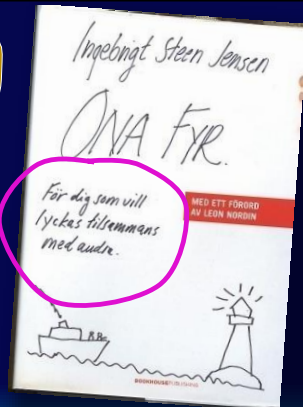 Ingebrigt Steen Jensen
ONA FYR.
För dig som vill
lyckas tillsammans
med andra.
MED ETT FÖRORD
AV LEON NORDIN
BOOKHOUSEPUBLISHING